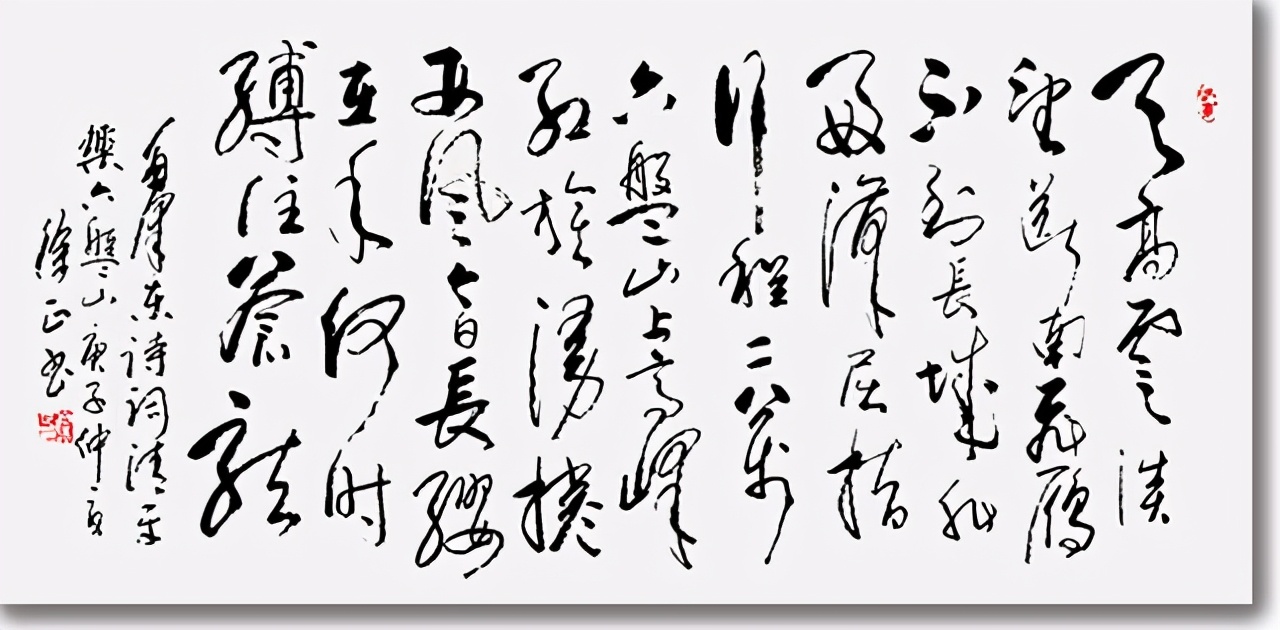 天高雲淡
望斷南飛雁
不到長城非
好漢屈指
行程二萬
六盤山上高峰
紅旗漫捲
西風今日長纓
在手何时
縛住蒼龍
毛澤东詩詞清平
樂六盤山庚子仲夏
徐正书